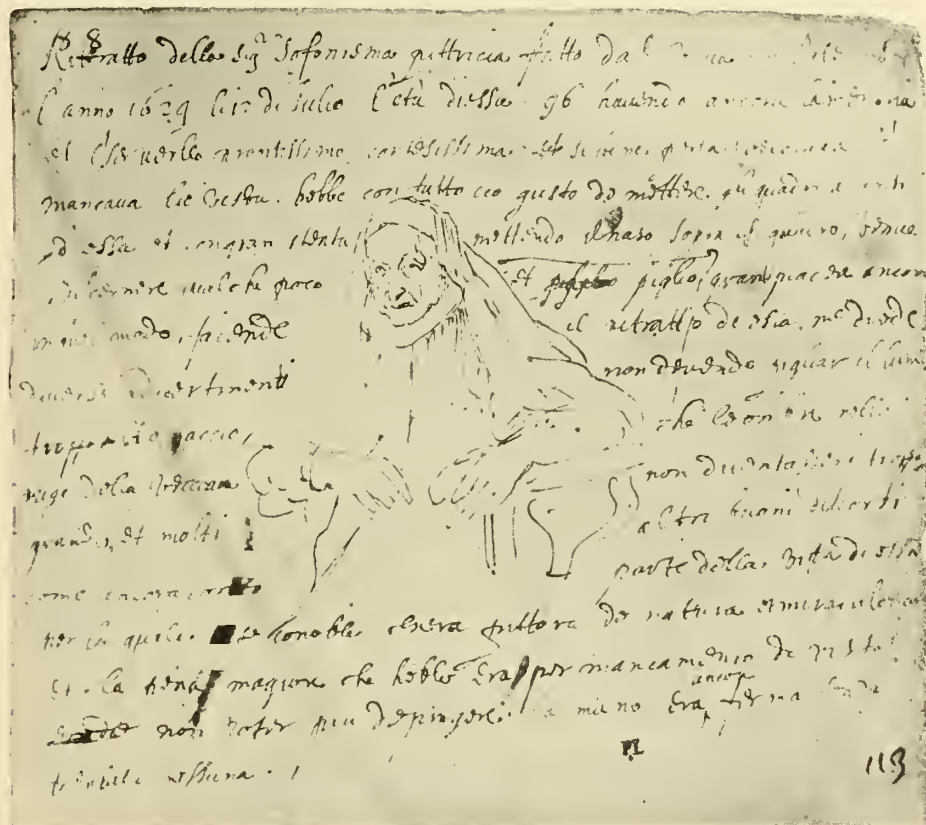 18 8
Rittratto della Sig.ra Sofonisma pittricia fatto dal
l'anno 1629 li 12 di Julio l'età di essa 96 havendo ancora la memoria
et il serverllo prontissimo, cortesissima. et si bene per la vecciaia il
mancava la vista. hebbe con tutto cio gusto de mettere gli quadri avanti
ad essa et con gran stenta mettendo il naso sopra il quadro, venne
discernere qualche poco et piglio gran piacere ancora
in quel modo, facende il ritratto de essa. me diede
diversi advertimenti non devendo pigliar il lume
troppo alto, accio, che le ombre nelle
ruge della vecciaia non diventassero troppo
grandi, et molti altri buoni discorsi
come ancora conto parte della vita di essa
per la quale se conobbe chera pittora de natura et miraculosa
et la pena magiore che hebbe era per mancamento di vista
non poter piu depingere. la mano era ancora ferma senza
tremula nessuna.
113